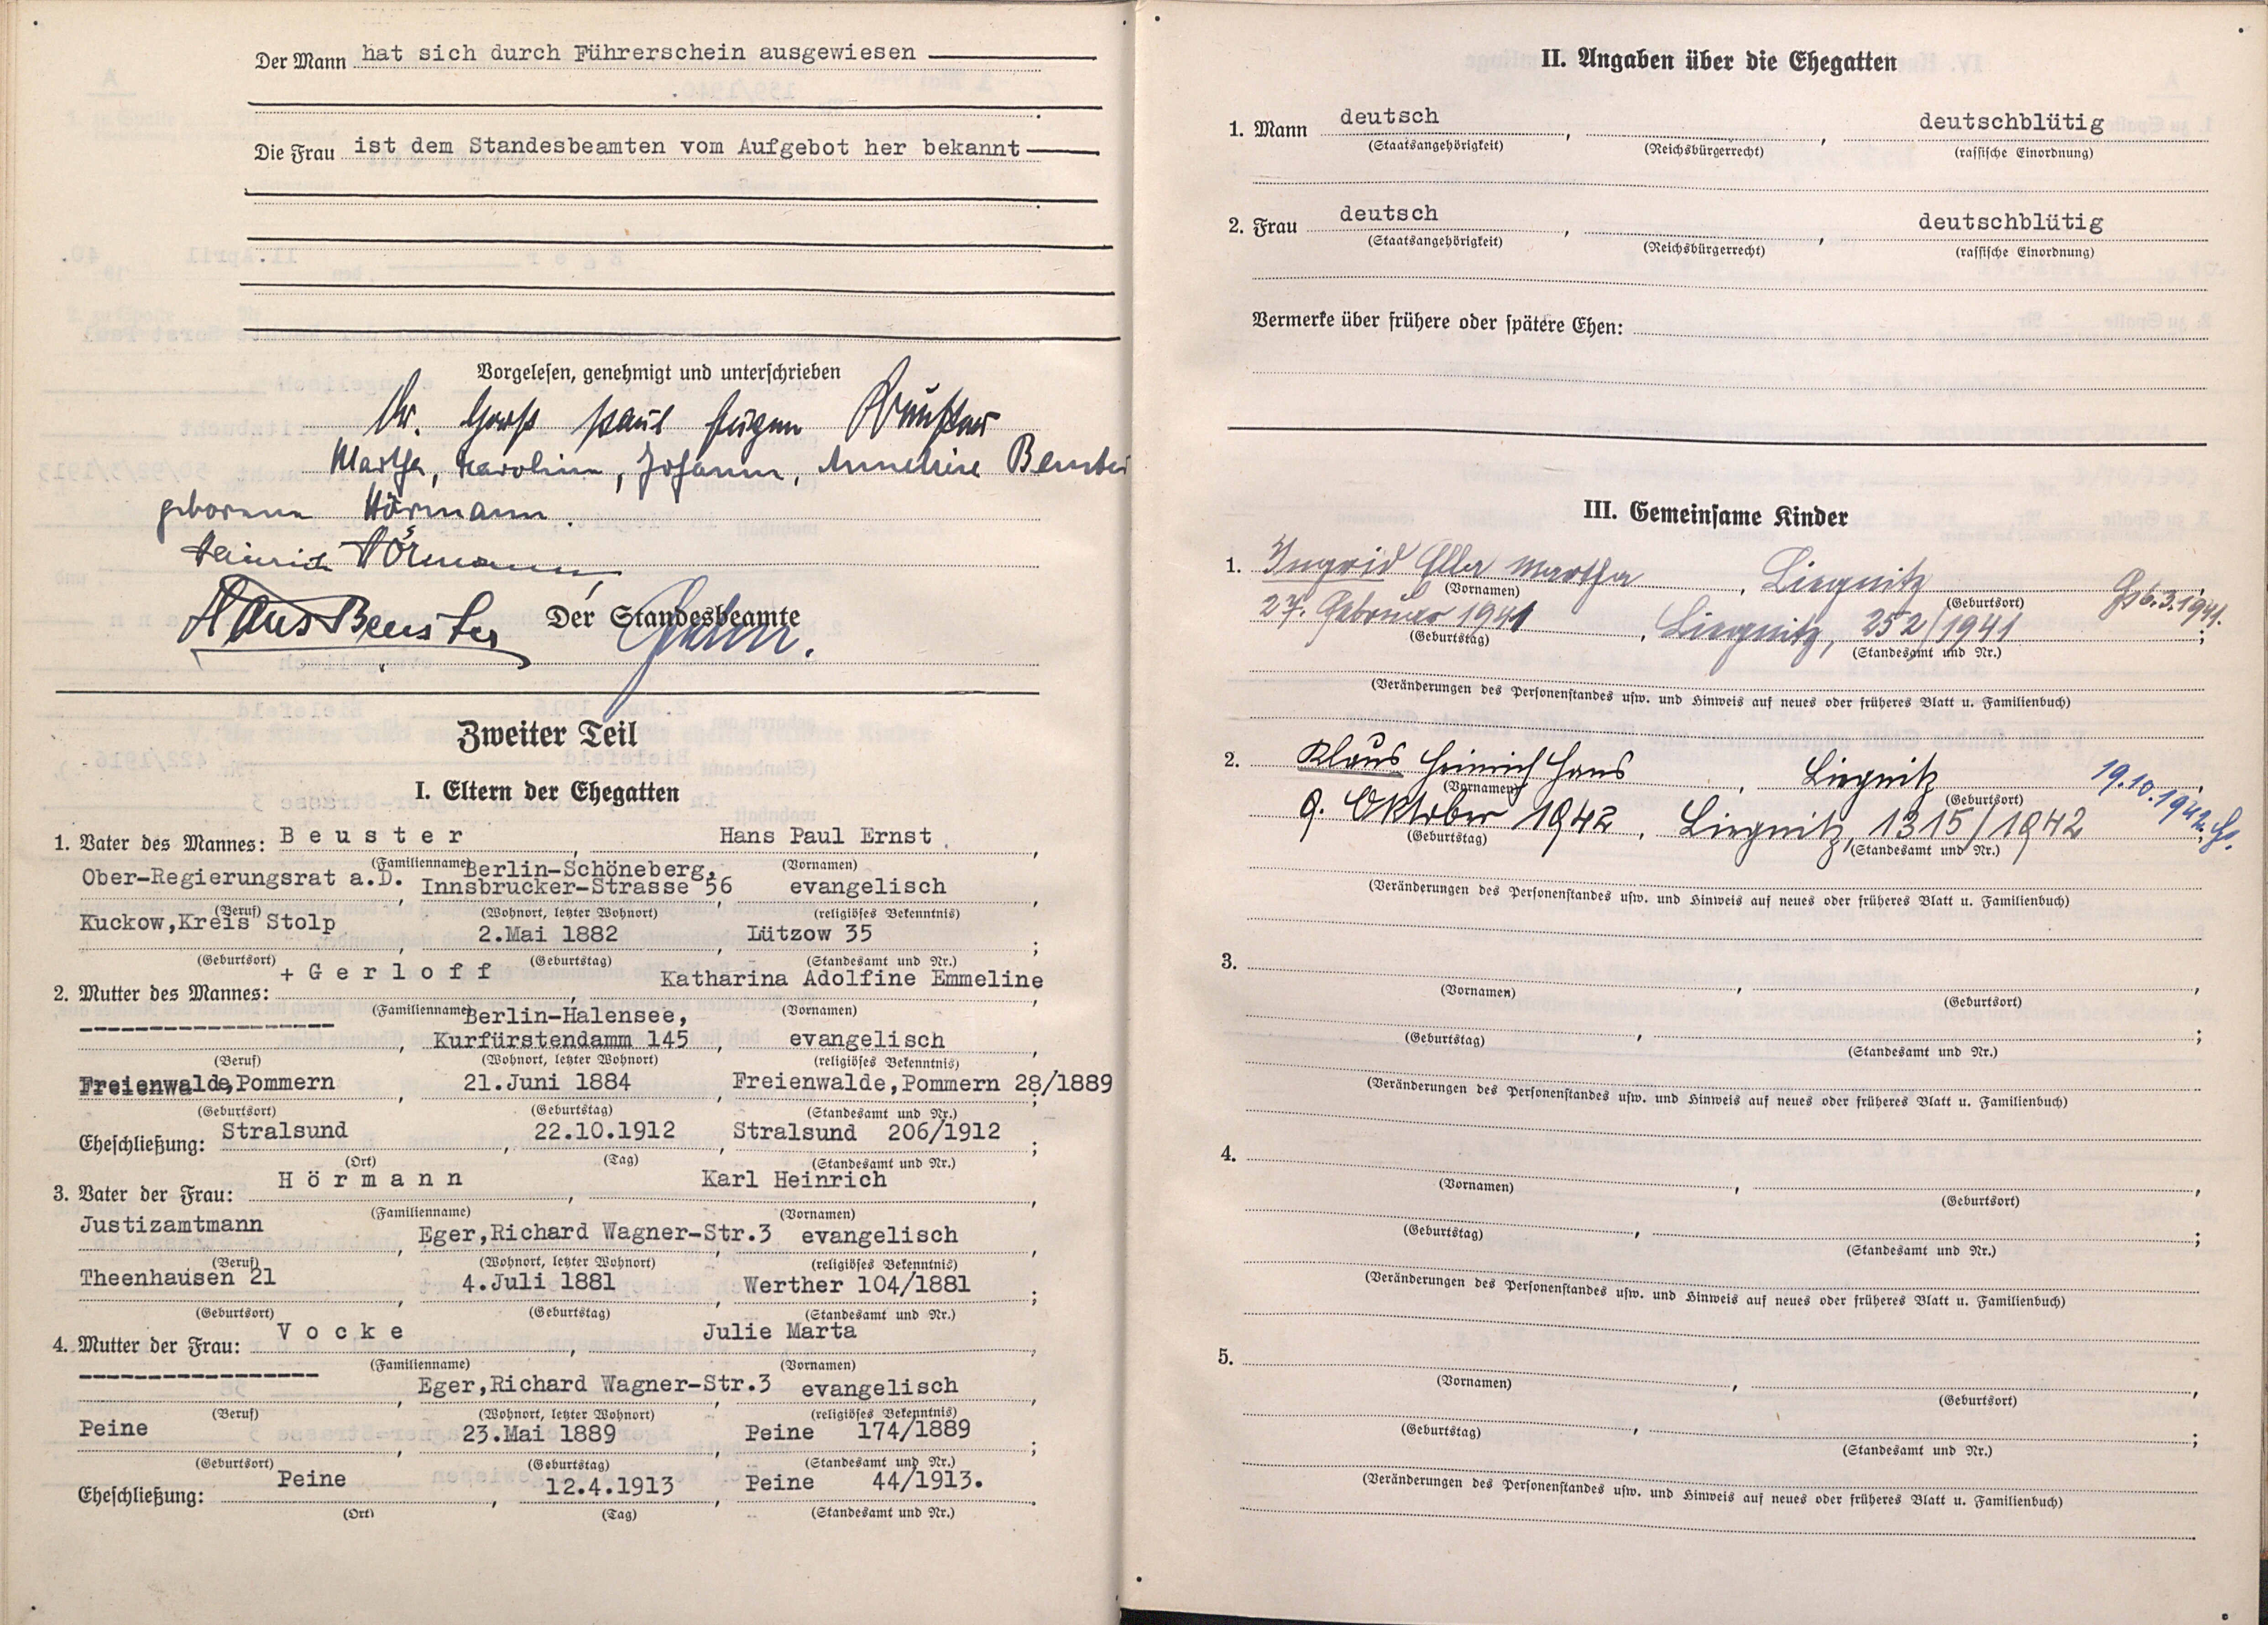 Der Mann hat sich durch Führerschein ausgewiesen
Die Frau ist dem Standesbeamten vom Aufgebot her bekannt
Vorgelesen, genehmigt und unterschrieben
Dr. Horst Paul Eugen Beuster
Martha, Karoline, Johanne, Anneliese Beuster
geborene Hörmann.
Heinrich Hörmann,
Hans Beuster Der Standesbeamte
Zweiter Teil
I. Eltern der Ehegatten
1. Vater des Mannes: Beuster, Hans Paul Ernst,
(Familienname) (Vornamen)
Berlin-Schöneberg,
Ober-Regierungsrat a.D., Innsbrucker-Strasse 56, evangelisch,
(Beruf) (Wohnort, letzter Wohnort) (religiöses Bekenntnis)
Kuckow,Kreis Stolp, 2.Mai 1882, Lützow 35;
(Geburtsort) (Geburtstag) (Standesamt und Nr.)
2. Mutter des Mannes: + Gerloff, Katharina Adolfine Emmeline,
(Familienname) (Vornamen)
Berlin-Halensee,
-------------------, Kurfürstendamm 145, evangelisch,
(Beruf) (Wohnort, letzter Wohnort) (religiöses Bekenntnis)
Freienwalde,Pommern, 21.Juni 1884, Freienwalde,Pommern 28/1889;
(Geburtsort) (Geburtstag) (Standesamt und Nr.)
Eheschließung: Stralsund, 22.10.1912, Stralsund 206/1912;
(Ort) (Tag) (Standesamt und Nr.)
3. Vater der Frau: Hörmann, Karl Heinrich,
(Familienname) (Vornamen)
Justizamtmann, Eger,Richard Wagner-Str.3, evangelisch,
(Beruf) (Wohnort, letzter Wohnort) (religiöses Bekenntnis)
Theenhausen 21, 4.Juli 1881, Werther 104/1881;
(Geburtsort) (Geburtstag) (Standesamt und Nr.)
4. Mutter der Frau: Vocke, Julie Marta,
(Familienname) (Vornamen)
------------------, Eger,Richard Wagner-Str.3, evangelisch,
(Beruf) (Wohnort, letzter Wohnort) (religiöses Bekenntnis)
Peine, 23.Mai 1889, Peine 174/1889;
(Geburtsort) (Geburtstag) (Standesamt und Nr.)
Eheschließung: Peine, 12.4.1913, Peine 44/1913.
(Ort) (Tag) (Standesamt und Nr.)
II. Angaben über die Ehegatten
1. Mann deutsch, , deutschblütig
(Staatsangehörigkeit) (Reichsbürgerrecht) (rassische Einordnung)
2. Frau deutsch, , deutschblütig
(Staatsangehörigkeit) (Reichsbürgerrecht) (rassische Einordnung)
Vermerke über frühere oder spätere Ehen:
III. Gemeinsame Kinder
1. Ingrid Ella Martha, Liegnitz, 6.3.1941.
(Vornamen) (Geburtsort)
27. Februar 1941, Liegnitz, 252/1941;
(Geburtstag) (Standesamt und Nr.)
(Veränderungen des Personenstandes usw. und Hinweis auf neues oder früheres Blatt u. Familienbuch)
2. Klaus Heinrich Hans, Liegnitz, 19.10.1942.
(Vornamen) (Geburtsort)
9. Oktober 1942, Liegnitz, 1315/1942
(Geburtstag) (Standesamt und Nr.)
(Veränderungen des Personenstandes usw. und Hinweis auf neues oder früheres Blatt u. Familienbuch)
3. , ,
(Vornamen) (Geburtsort)
, ;
(Geburtstag) (Standesamt und Nr.)
(Veränderungen des Personenstandes usw. und Hinweis auf neues oder früheres Blatt u. Familienbuch)
4. , ,
(Vornamen) (Geburtsort)
, ;
(Geburtstag) (Standesamt und Nr.)
(Veränderungen des Personenstandes usw. und Hinweis auf neues oder früheres Blatt u. Familienbuch)
5. , ,
(Vornamen) (Geburtsort)
, ;
(Geburtstag) (Standesamt und Nr.)
(Veränderungen des Personenstandes usw. und Hinweis auf neues oder früheres Blatt u. Familienbuch)